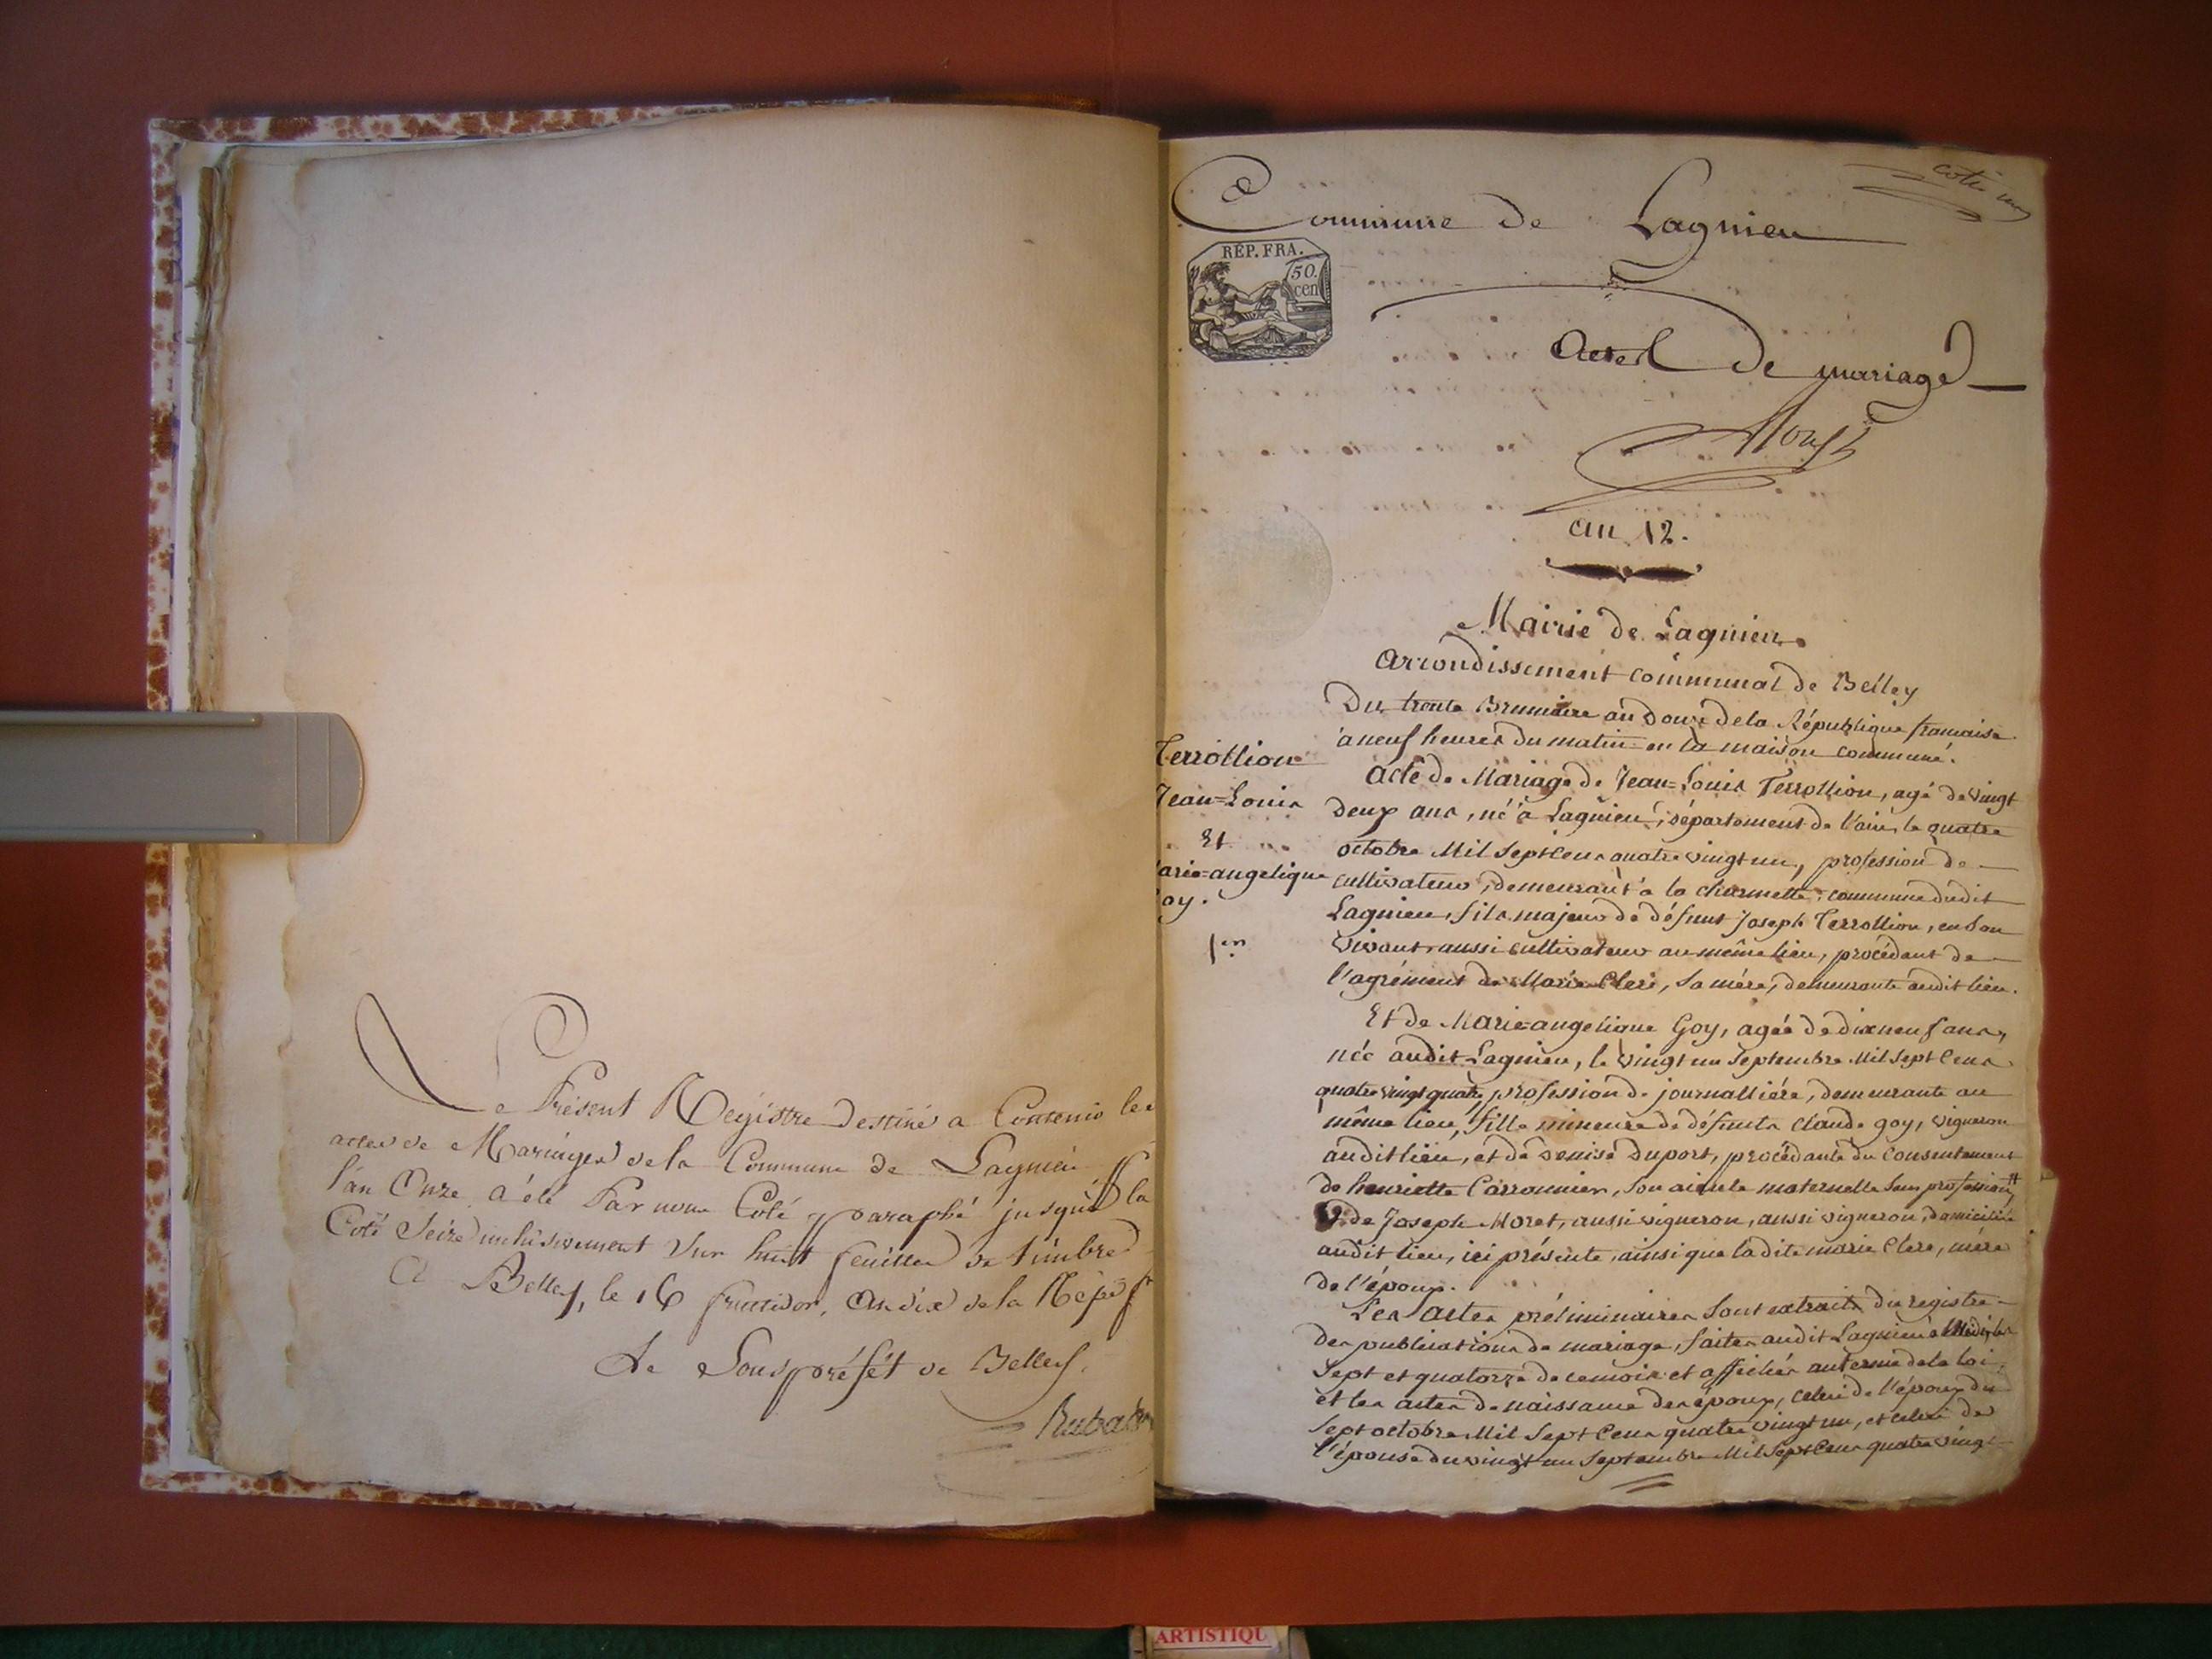 Le Présent Registre destiné a Contenir les
actes de Mariages de la Commune de Lagnieu
l'an Onze a été Par nous Coté & paraphé jusqu'à la
Cote Seize inclusivement sur huit feuilles de timbre
A Belley, le 16 fructidor, an dix de la Rép. fr
Le Souspréfét de Belley.
coté un
Commune de Lagnieu
RÉP. FRA.
50.
cen
Actes de mariage
an 12.
Mairie de Lagnieu.
Arrondissement communal de Belley
Du trente Brumaire an douze de la République francaise
à neuf heures du matin en la maison commune.
Terrollion
Jean=Louis
Et
arie=angelique
oy.
1er
Acte de Mariage de Jean=Louis Terrollion, agé de vingt
deux ans, né à Lagnieu, département de l'ain, le quatre
octobre Mil Sept Cens quatre vingt un, profession de
cultivateur, demeurant à la charmette, commune dudit
Lagnieu, fils majeur de défunt Joseph Terrollion, en son
vivant aussi cultivateur au même lieu, procédant de
l'agrément de Marie Clere, sa mère, demeurante audit lieu.
Et de Marie=angelique Goy, agée de dixneuf ans,
née audit Lagnieu, le vingt un Septembre Mil Sept Cens
quatre vingt quatre, profession de journalliére, demeurante au
même lieu, fille mineure de défunts claude goy, vigneron
audit lieu, et de denise Duport, procédante du Consentement
de henriette Carronnier, son aieule maternelle sans profession
de Joseph Moret, aussi vigneron, aussi vigneron, domiciliée
audit lieu, ici présente, ainsi que ladite marie Clere, mère
de l'époux.
Les actes préliminaires sont extraits du registre
des publications de mariage, faites audit Lagnieu les
Sept et quatorze de ce mois et affichés au terme de la loi
et les actes de naissance des époux, celui de l'époux du
Sept octobre Mil Sept Cens quatre vingt un, et celui de
l'épouse du vingt un Septembre Mil Sept Cens quatre vingt
ARTISTIQU